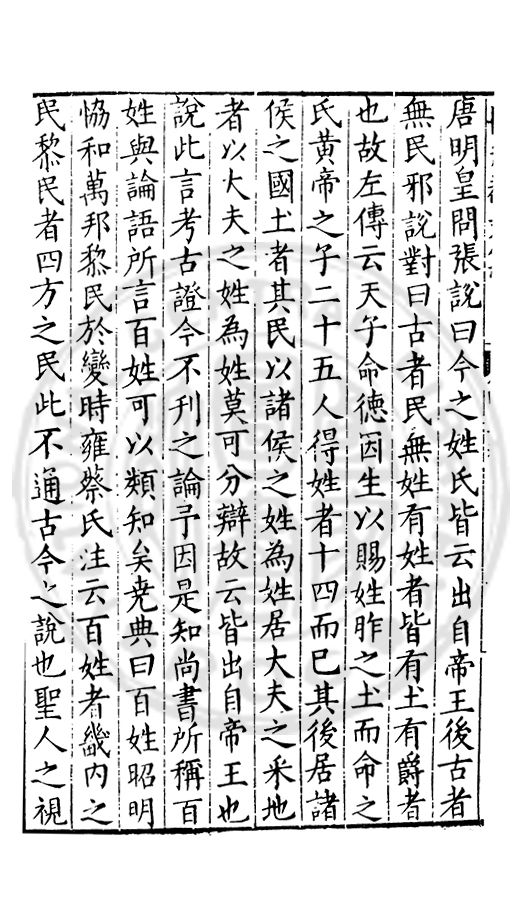 唐明皇問張說曰今之姓氏皆云出自帝王後古者
無民邪說對曰古者民無姓有姓者皆有𡈽有爵者
也故左傳云天子命德因生以賜姓胙之𡈽而命之
氏黃帝之子二十五人得姓者十四而已其後居諸
侯之國𡈽者其民以諸侯之姓為姓居大夫之采地
者以大夫之姓為姓莫可分辯故云皆出自帝王也
說此言考古證今不刋之論予因是知尚書所稱百
姓與論語所言百姓可以類知矣尭典曰百姓昭明
恊和萬邦黎民於變時雍蔡氏注云百姓者畿內之
民黎民者四方之民此不通古今之說也聖人之視